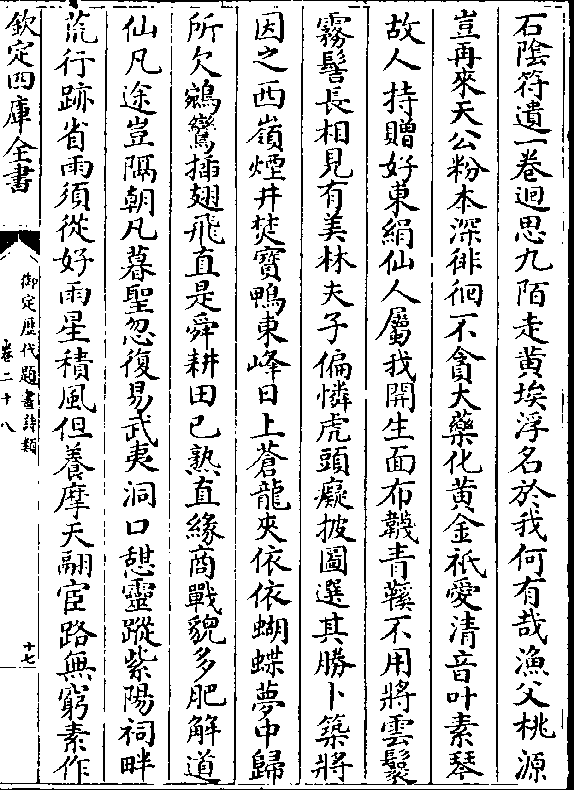 石陰符遺一卷迴思九陌走黄埃浮名於我何有哉漁父桃源
豈再來天公粉本深徘徊不貪大藥化黄金祇愛清音叶素琴
故人持贈好東絹仙人屬我開生面布韈青鞵不用將雲鬟
霧髻長相見有美林夫子偏憐虎頭癡披圖選其勝卜築將
因之西嶺煙井焚寶鴨東峰日上蒼龍夾依依蝴蝶夢中歸
所欠鵷鸞插翅飛直是舜耕田已熟直緣商戰貌多肥解道
仙凡途豈隔朝凡暮聖忽復易武夷洞口憇靈蹤紫陽祠畔
荒行跡省雨須從好雨星積風但養摩天翮宦路無窮素作
欽定四庫全書
御定歴代題畫詩類
卷二十八
十七